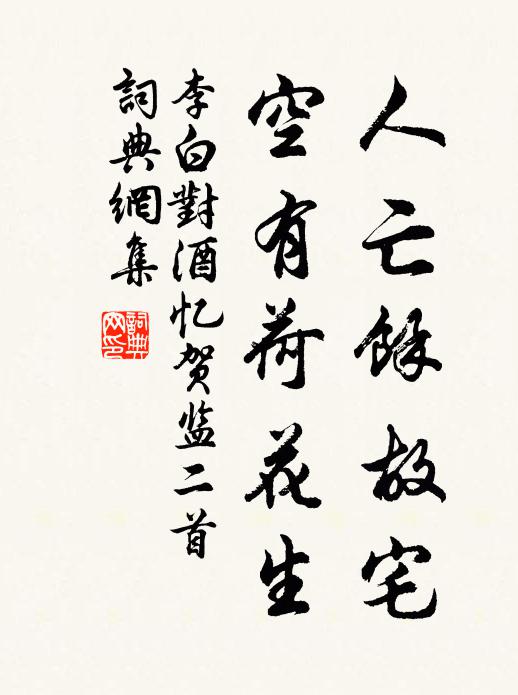 人亡餘故宅
空有荷花生
李白對酒忆贺监二首
詞典網集
詞典
网印